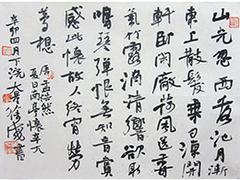 山光忽西落池月漸
東上散髮乘夕涼開
軒卧閑敞荷風送香
氣竹露滴清響欲取
鳴琴彈恨無知音賞
感此懷故人終宵勞
夢想
唐孟浩然
夏日南亭懷辛大
辛卯四月下浣
書